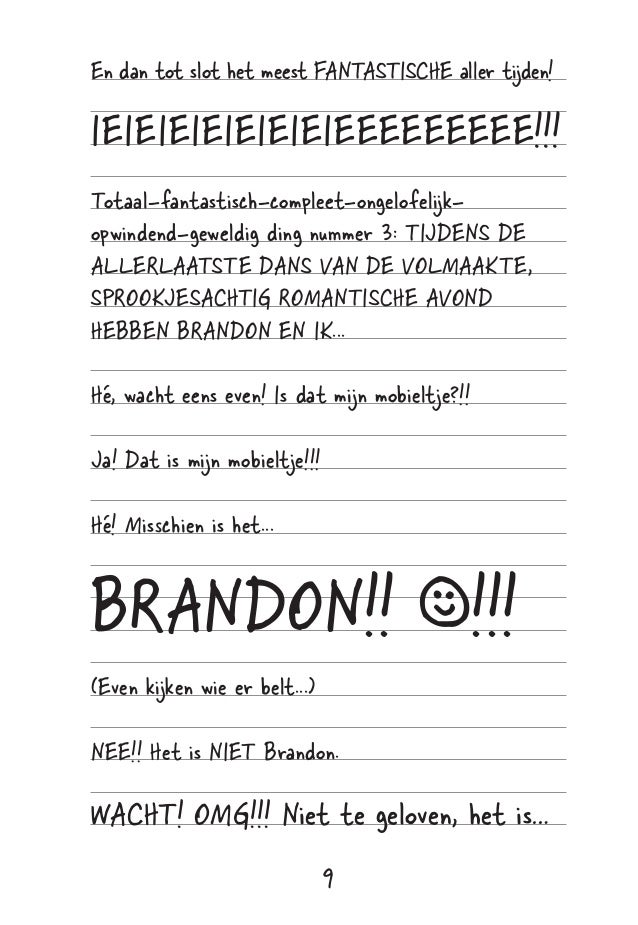 En dan tot slot het meest FANTASTISCHE aller tijden!
IEIEIEIEIEIEIEIEEEEEEEEE!!!
Totaal-fantastisch-compleet-ongelofelijk-
opwindend-geweldig ding nummer 3: TIJDENS DE
ALLERLAATSTE DANS VAN DE VOLMAAKTE,
SPROOKJESACHTIG ROMANTISCHE AVOND
HEBBEN BRANDON EN IK...
Hé, wacht eens even! Is dat mijn mobieltje?!!
Ja! Dat is mijn mobieltje!!!
Hé! Misschien is het...
BRANDON!! ☺!!!
(Even kijken wie er belt...)
NEE!! Het is NIET Brandon.
WACHT! OMG!!! Niet te geloven, het is...
9